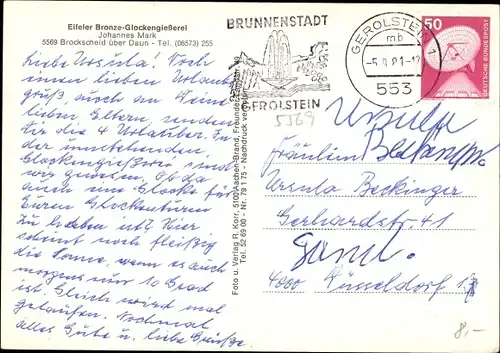 Eifeler Bronze-Glockengießerei
Johannes Mark
5569 Brockscheid über Daun - Tel. (06573) 255
Liebe Ursula! Noch
einen lieben Urlaubs-
gruß auch an Deine
lieben Eltern, senden
Dir die 4 Urlauber. In
der umstehenden
Glockengießerei sind
wir gewesen. Ist da
auch eine Glocke für
Euren Glockenturm
zu haben ut? Hier
scheint noch fleißig
die Sonne, wenn es auch
morgens nur 10 Grad
ist. Gleich wird mal
gelaufen. Nochmal
alles Gute u. liebe Grüße.
Foto u. Verlag R. Korr, 5100 Aachen-Brand, Freunder
Tel. 52 69 00 - Nr. 79 1 75 - Nachdruck verboten
BRUNNENSTADT
GEROLSTEIN
GEROLSTEIN 1
mb
-5.9.81-12
553
50
DEUTSCHE BUNDESPOST
5569
Ursula
Fräulein
Ursula Beckinger
Gerhardstr. 41
4000 Düsseldorf 1
8,-